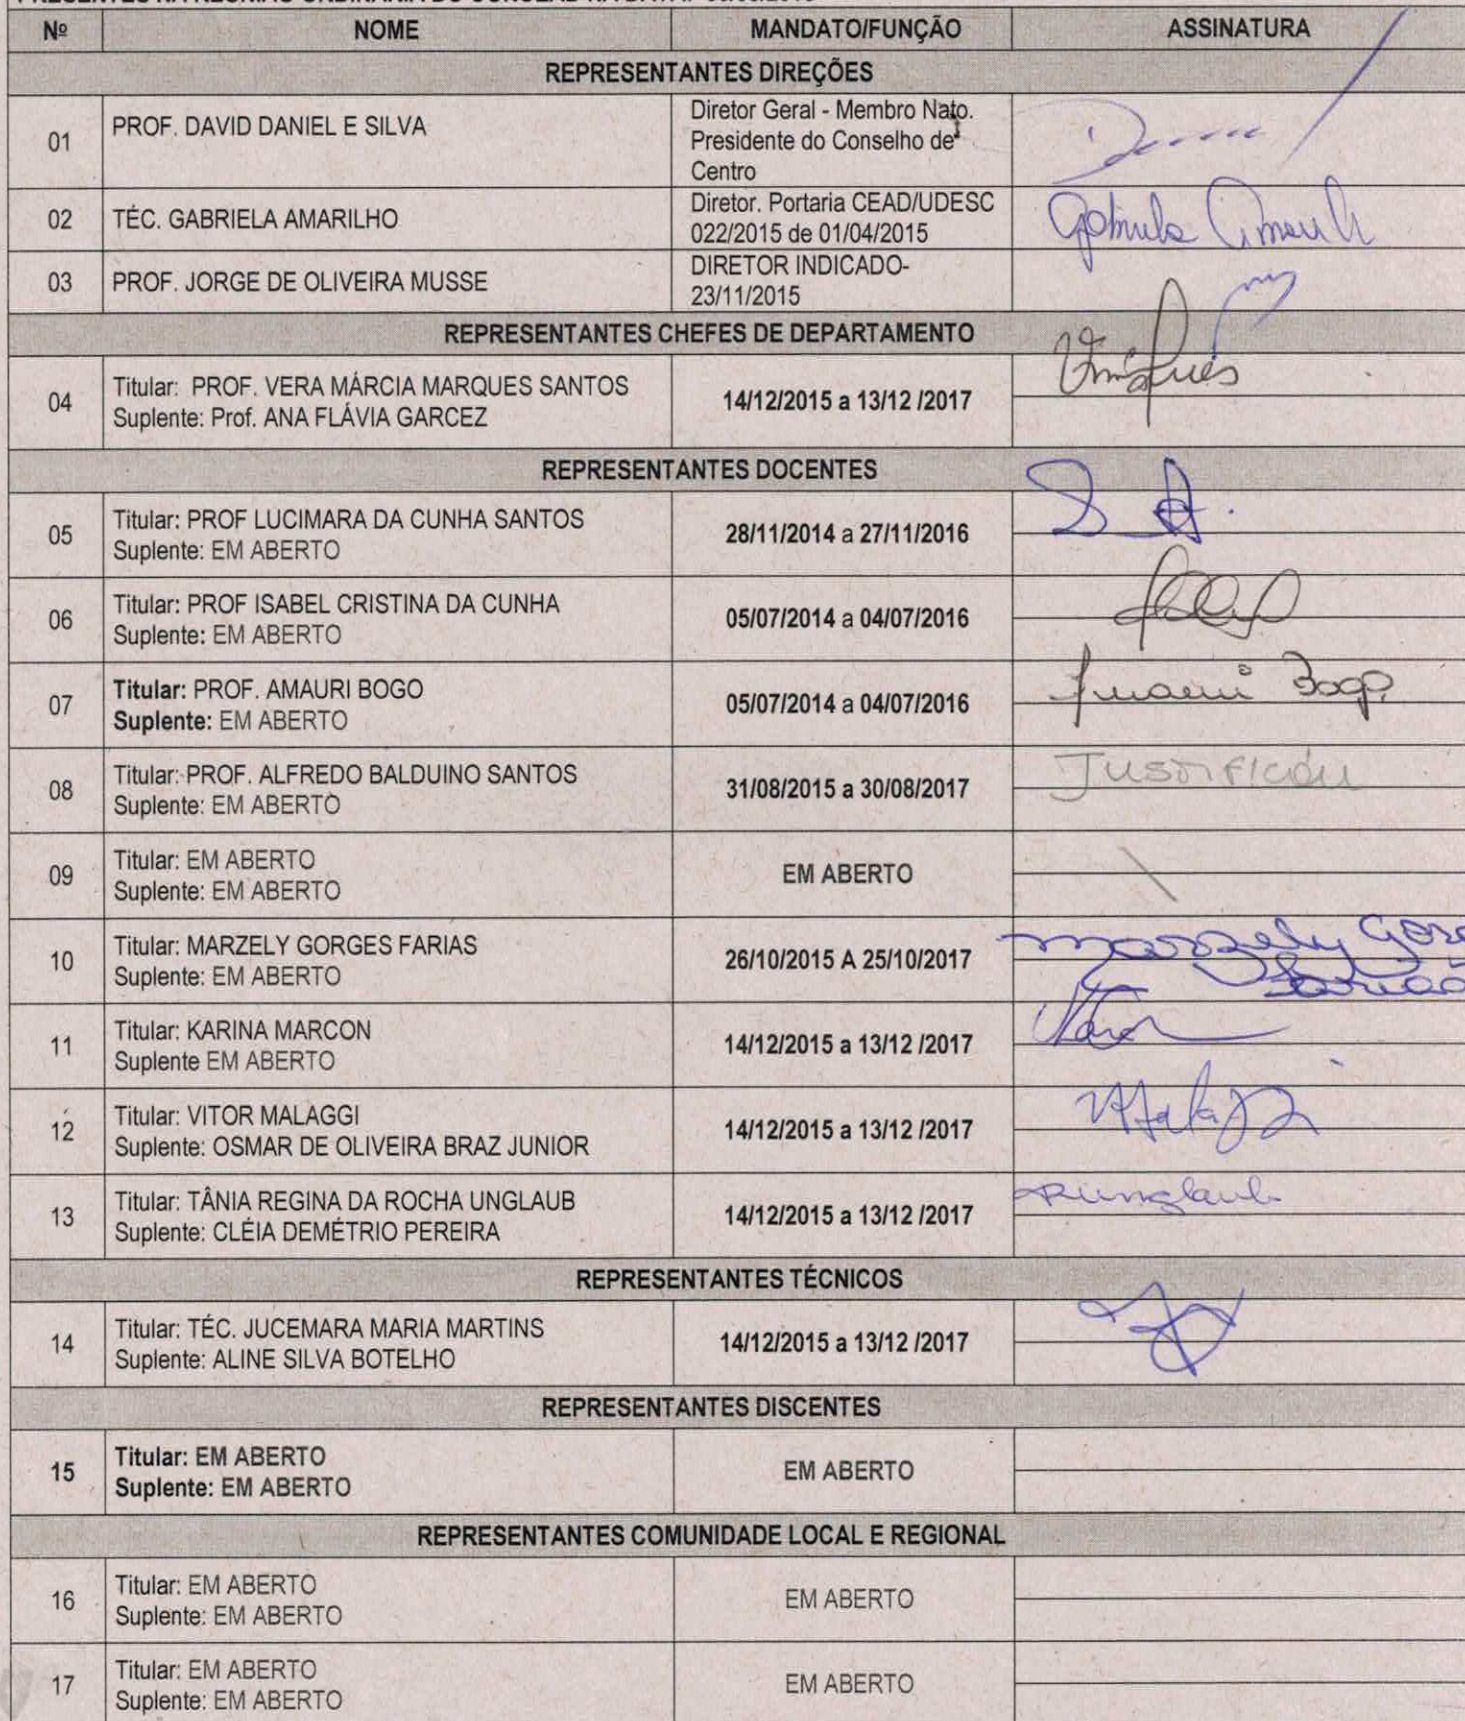 Nº NOME MANDATO/FUNÇÃO ASSINATURA
REPRESENTANTES DIREÇÕES
01 PROF. DAVID DANIEL E SILVA
Diretor Geral - Membro Nato.
Presidente do Conselho de
Centro
02 TÉC. GABRIELA AMARILHO
Diretor. Portaria CEAD/UDESC
022/2015 de 01/04/2015
Gabriela
03 PROF. JORGE DE OLIVEIRA MUSSE
DIRETOR INDICADO-
23/11/2015
REPRESENTANTES CHEFES DE DEPARTAMENTO
04
Titular: PROF. VERA MÁRCIA MARQUES SANTOS
Suplente: Prof. ANA FLÁVIA GARCEZ
14/12/2015 a 13/12 /2017
REPRESENTANTES DOCENTES
05
Titular: PROF LUCIMARA DA CUNHA SANTOS
Suplente: EM ABERTO
28/11/2014 a 27/11/2016
06
Titular: PROF ISABEL CRISTINA DA CUNHA
Suplente: EM ABERTO
05/07/2014 a 04/07/2016
07
Titular: PROF. AMAURI BOGO
Suplente: EM ABERTO
05/07/2014 a 04/07/2016
Amauri Bogo
08
Titular: PROF. ALFREDO BALDUINO SANTOS
Suplente: EM ABERTO
31/08/2015 a 30/08/2017
09
Titular: EM ABERTO
Suplente: EM ABERTO
EM ABERTO
10
Titular: MARZELY GORGES FARIAS
Suplente: EM ABERTO
26/10/2015 A 25/10/2017
Marzely
Farias
11
Titular: KARINA MARCON
Suplente EM ABERTO
14/12/2015 a 13/12 /2017
12
Titular: VITOR MALAGGI
Suplente: OSMAR DE OLIVEIRA BRAZ JUNIOR
14/12/2015 a 13/12 /2017
13
Titular: TÂNIA REGINA DA ROCHA UNGLAUB
Suplente: CLÉIA DEMÉTRIO PEREIRA
14/12/2015 a 13/12 /2017
REPRESENTANTES TÉCNICOS
14
Titular: TÉC. JUCEMARA MARIA MARTINS
Suplente: ALINE SILVA BOTELHO
14/12/2015 a 13/12 /2017
REPRESENTANTES DISCENTES
15
Titular: EM ABERTO
Suplente: EM ABERTO
EM ABERTO
REPRESENTANTES COMUNIDADE LOCAL E REGIONAL
16
Titular: EM ABERTO
Suplente: EM ABERTO
EM ABERTO
17
Titular: EM ABERTO
Suplente: EM ABERTO
EM ABERTO